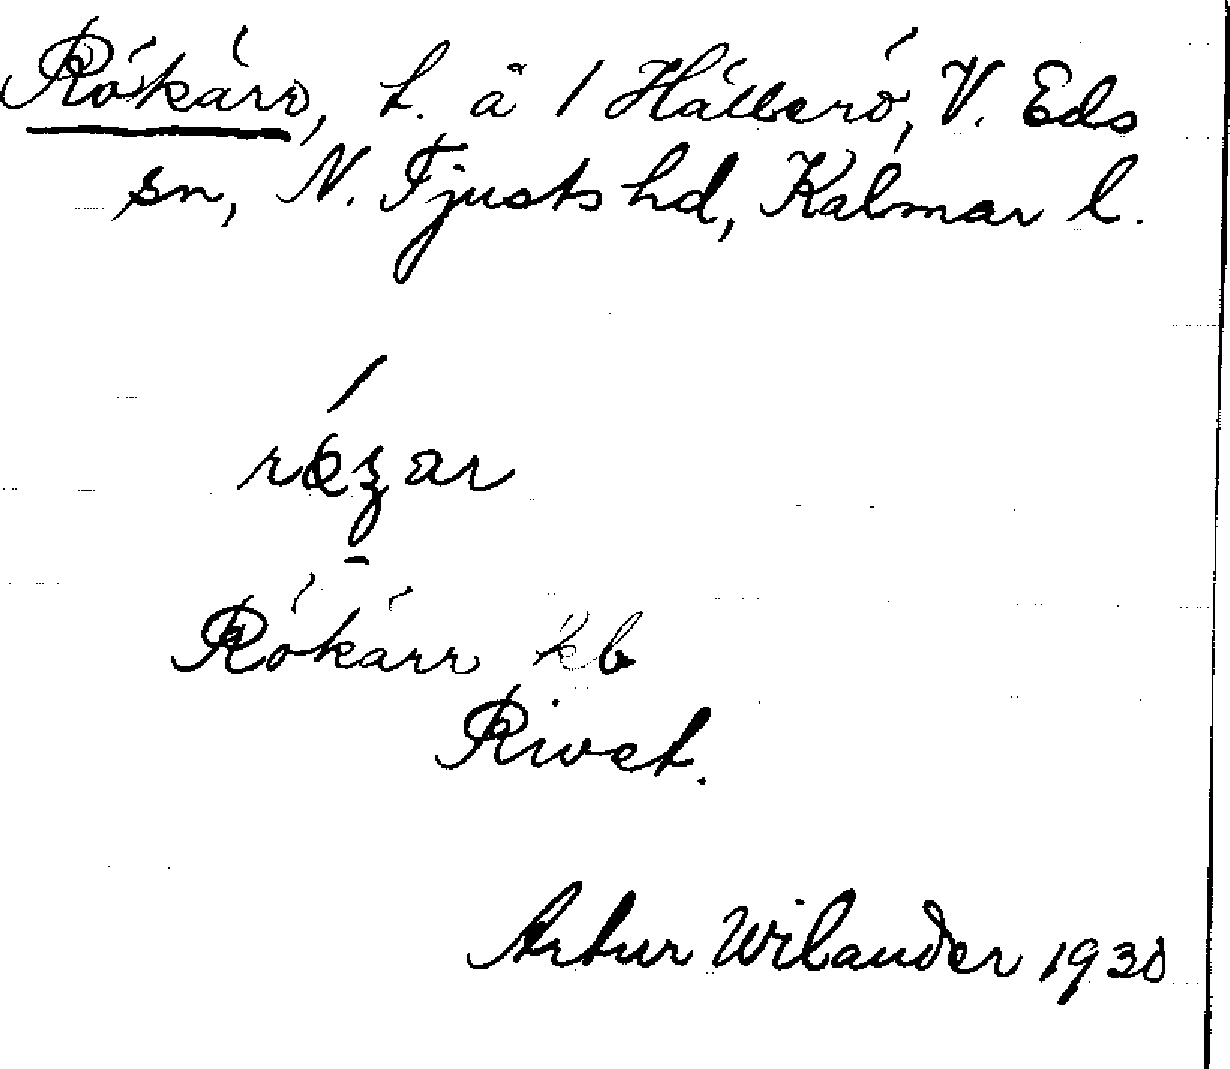 Rökärr, t. å 1 Hällerö, V. Eds
sn, N. Tjusts hd, Kalmar l.
Rökärr kb
Rivet.
Artur Wilander 1930